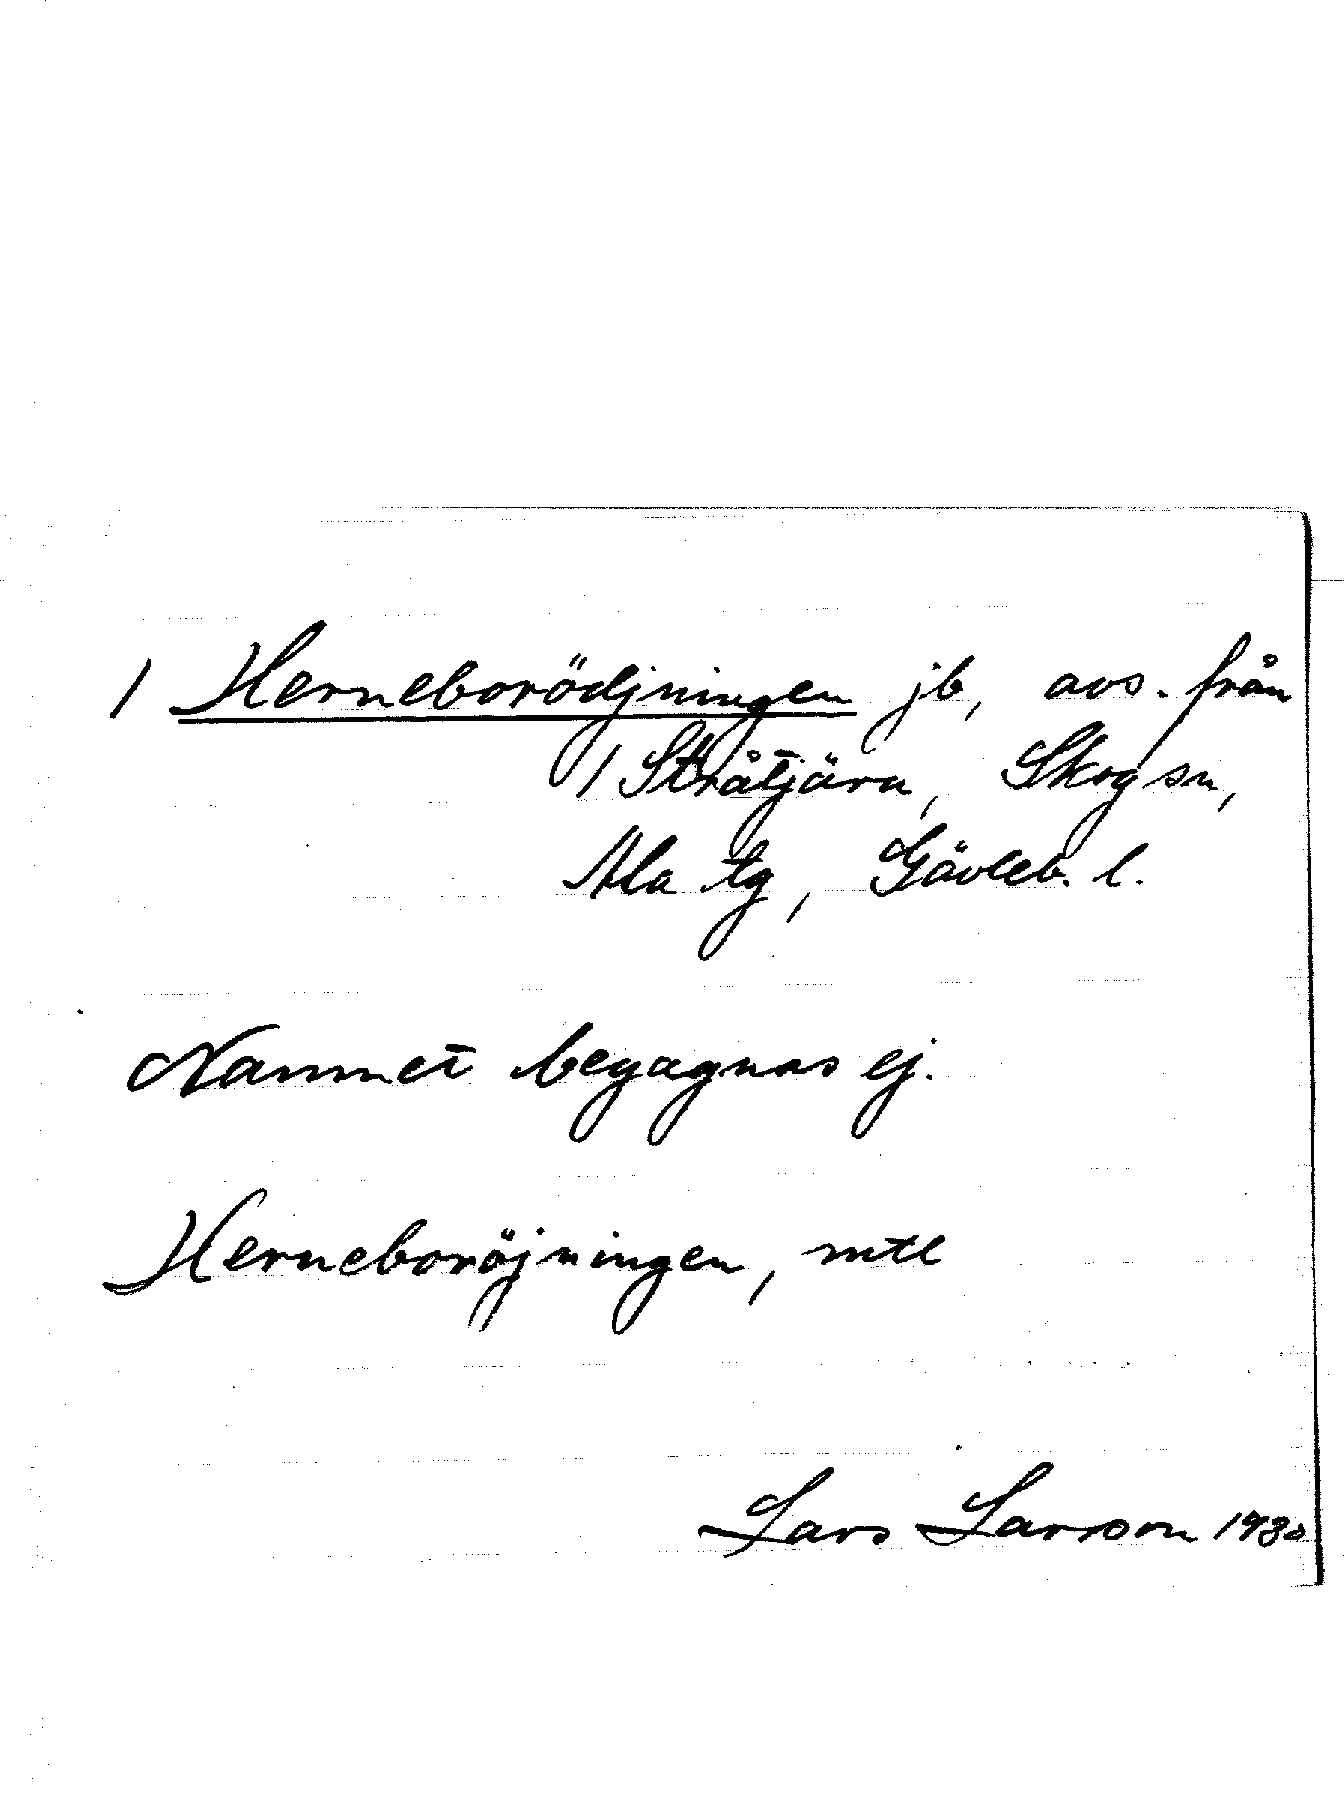 1 Herneborödjningen jb, avs. från
1 Stråtjära, Skog sn,
Ala tg, Gävleb. l.
Namnet begagnas ej.
Herneboröjningen, mtl
Lars Larsson 1930